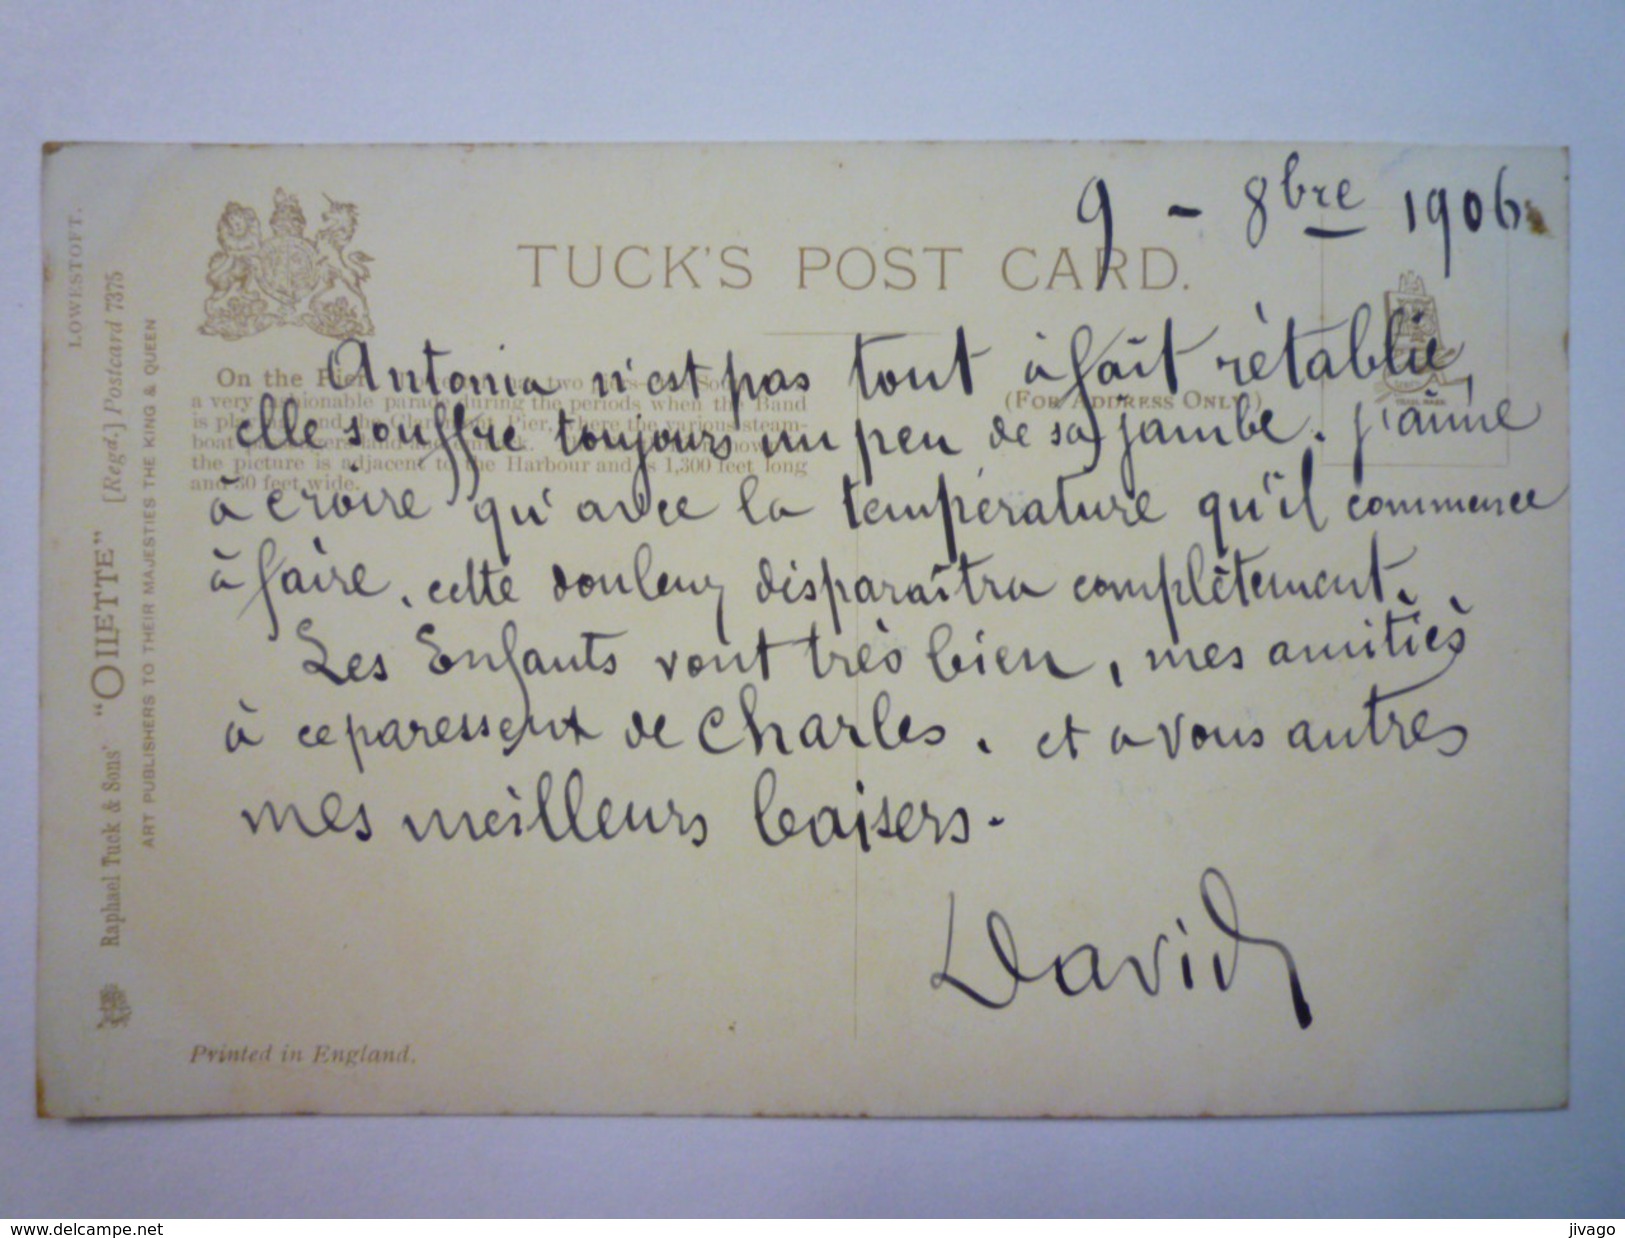 9 - 8bre 1906
TUCK'S POST CARD.
Antonia n'est pas tout à fait rétablie,
elle souffre toujours un peu de sa jambe. j'aime
à croire qu'avec la température qu'il commence
à faire, cette douleur disparaîtra complètement.
Les Enfants vont très bien, mes amitiés
à ce paressent de Charles. et a vous autres
mes meilleurs baisers.
David
(FOR ADDRESS ONLY.)
On the Pier
a very fashionable parade during the periods when the Band
is the Claremont Pier, where the various steam-
boat
the picture is adjacent to the Harbour and is 1,300 feet long
and 30 feet wide.
LOWESTOFT.
Raphael Tuck & Sons' "OILETTE" [Regd.] Postcard 7375
ART PUBLISHERS TO THEIR MAJESTIES THE KING & QUEEN
Printed in England.
www.delcampe.net
jivago